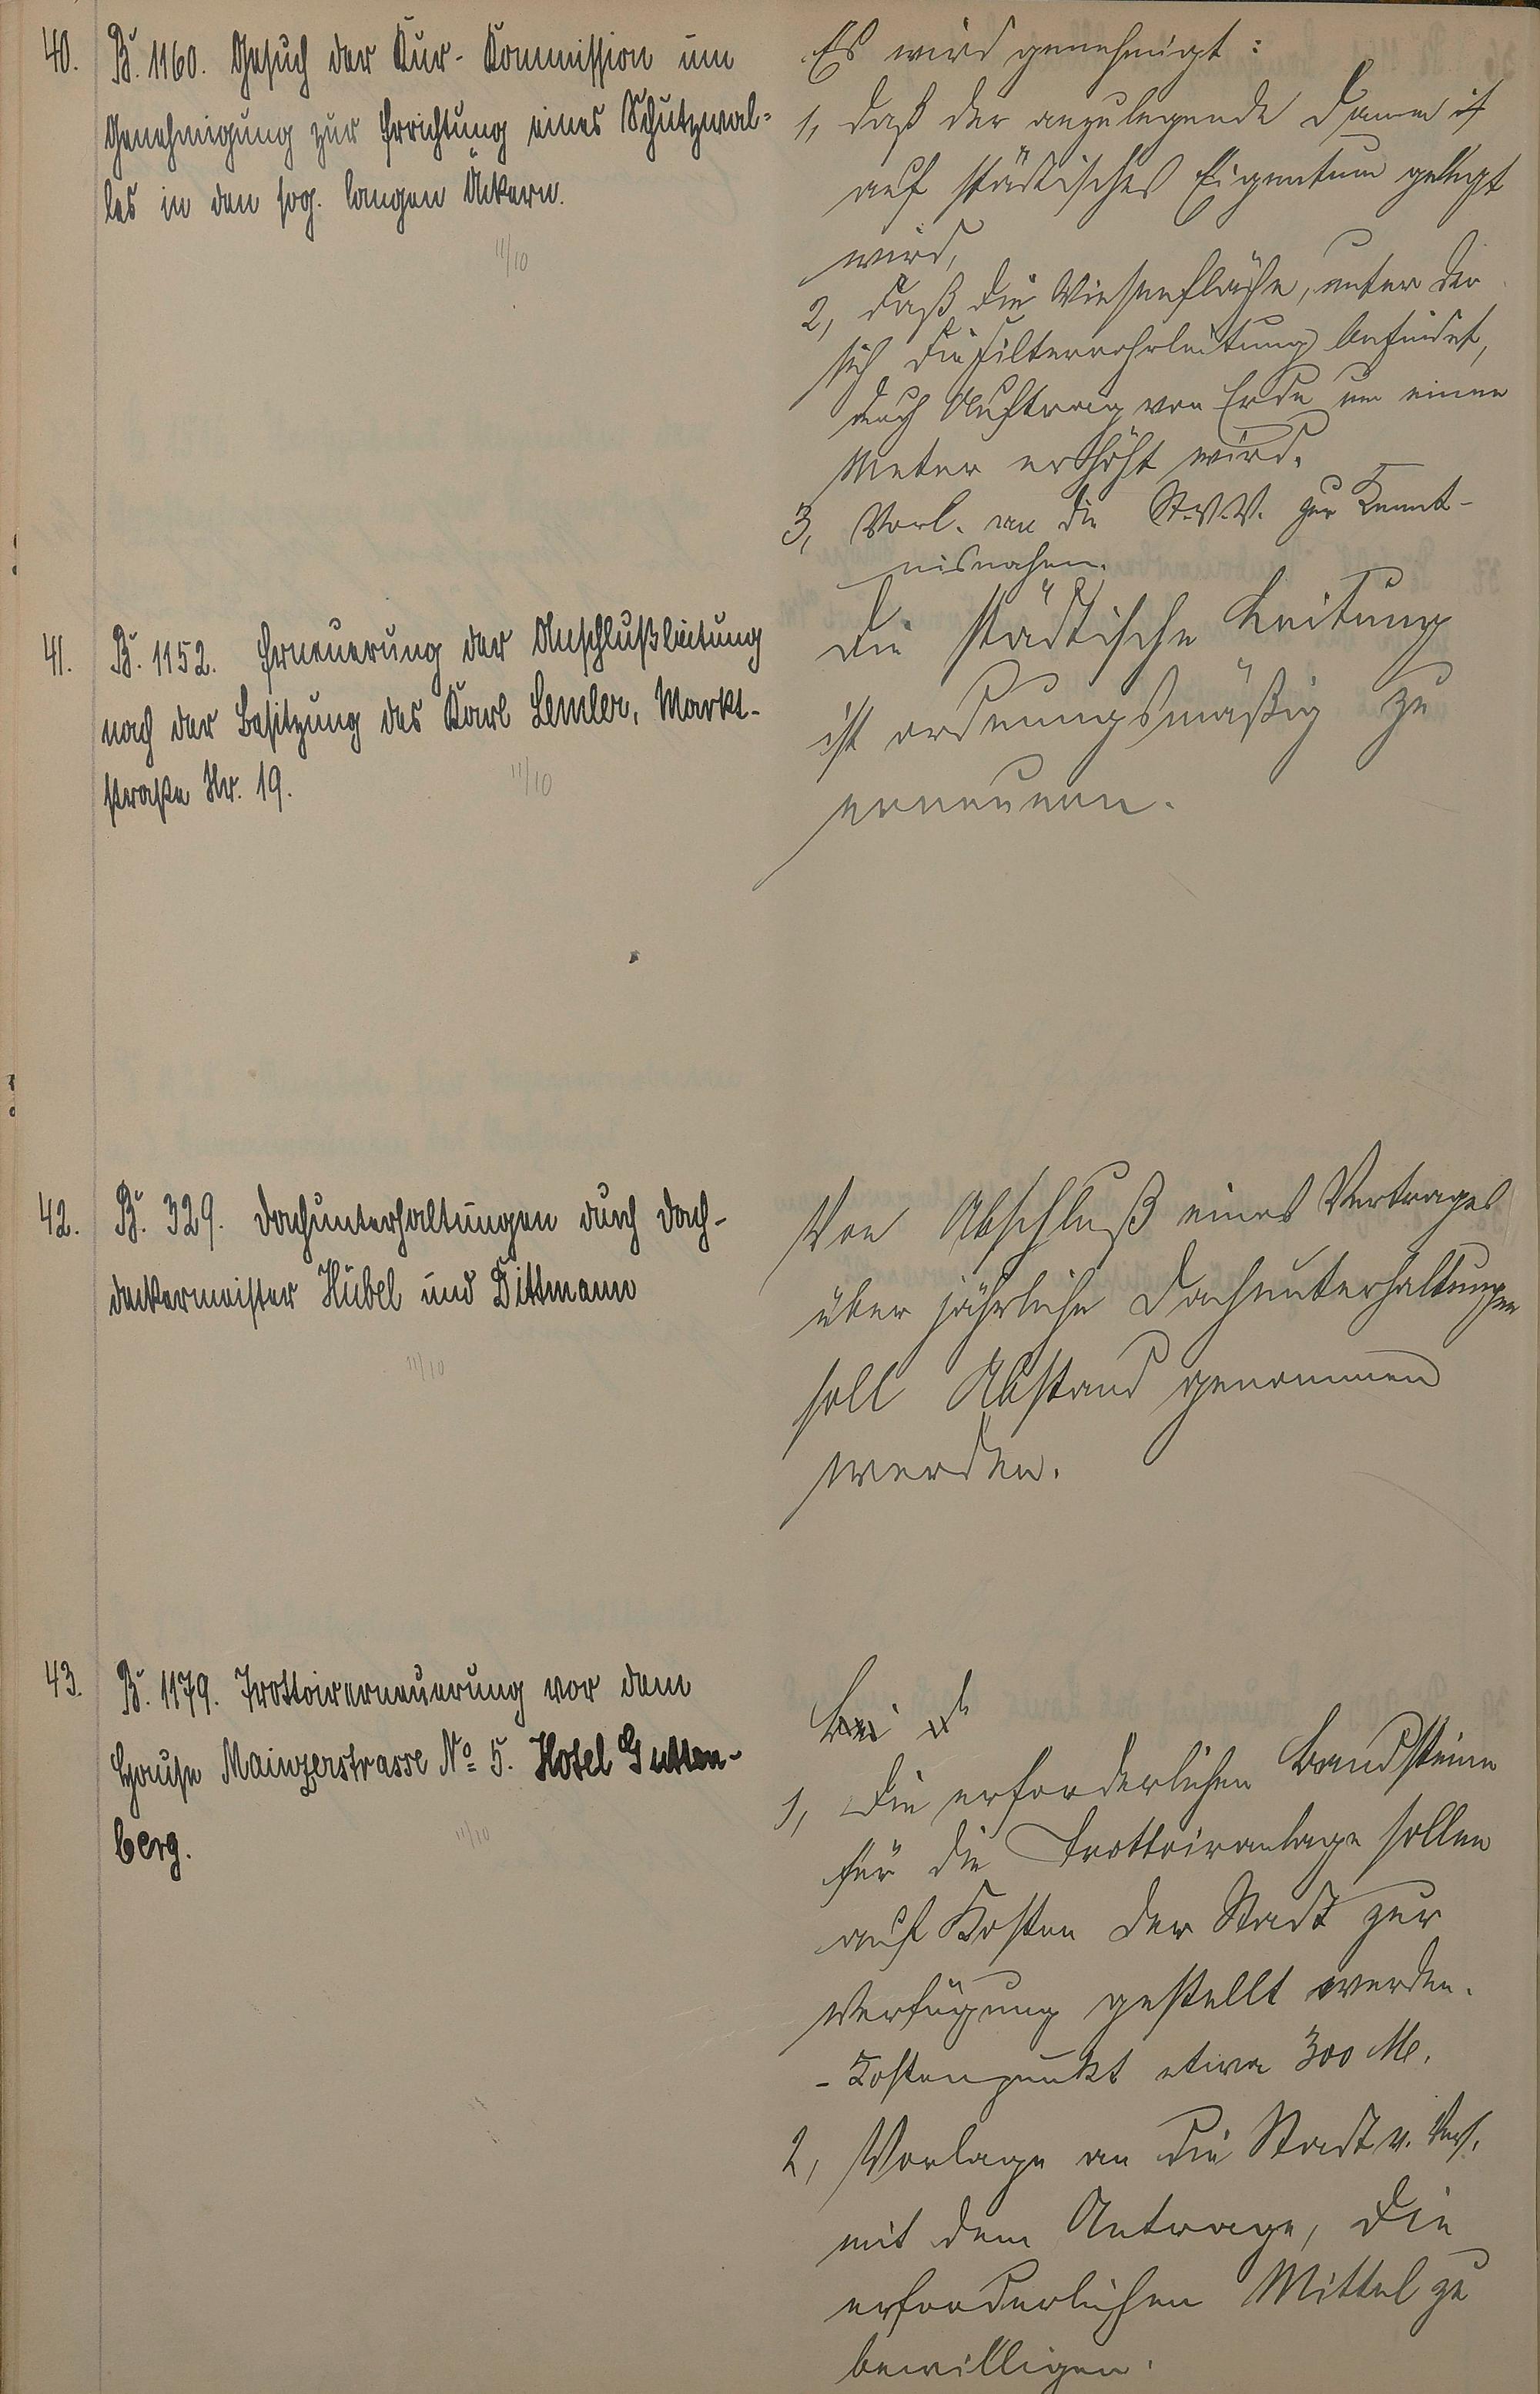 40. B. 1160. Gesuch der Kur-Kommission um
Genehmigung zur Errichtung eines Schutzwal-
les in den sog. langen Äckern.
11/10
Es wird genehmigt:
1, daß der anzulegende Damm
auf städtisches Eigentum gelegt
wird,
2, daß die Wiesenfläche, unter der
sich die Filterrohrleitung befindet,
durch Auftrag von Erde um einen
Meter erhöht wird.
3, Vorl. an die St.V.V. zur Kennt-
nisnahme.
41. B. 1152. Erneuerung der Anschlußleitung
nach der Besitzung des Karl Lemler, Markt-
straße Nr. 19.
11/10
Die städtische Leitung
ist ordnungsmäßig zu
erneuern.
42. B. 329. Dachunterhaltungen durch Dach-
deckermeister Hübel und Dittmann
11/10
Von Abschluß eines Vertrages
über jährliche Dachunterhaltungen
soll Abstand genommen
werden.
43. B. 1179. Trottoirerneuerung vor dem
Hause Mainzerstrasse No 5. Hotel Gutten-
berg.
11/10
Bei d
1, Die erforderlichen Bandsteine
für die Trottoiranlage sollen
auf Kosten der Stadt zur
Verfügung gestellt werden.
- Kostenpunkt etwa 300 M.
2, Vorlage an die Stadt v. Vers.
mit dem Antrage, die
erforderlichen Mittel zu
bewilligen.